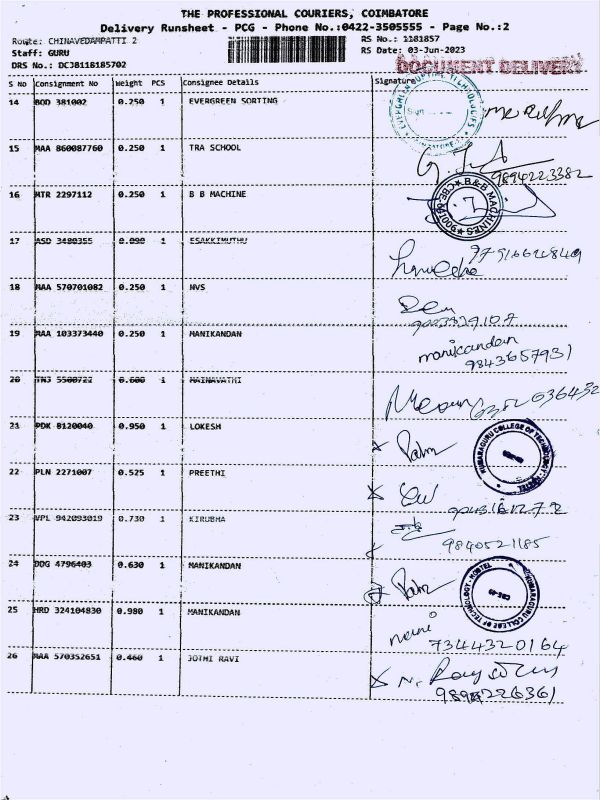 THE PROFESSIONAL COURIERS, COIMBATORE
Delivery Runsheet - PCG - Phone No.:0422-3505555 - Page No.:2
Route: CHINAVEDAMPATTI 2
RS No.: 1181857
Staff: GURU
RS Date: 03-Jun-2023
DRS No.: DCJB118185702
DOCUMENT DELIVERY
S No Consignment No Weight PCS Consignee Details Signature
14 BOD 381002 0.250 1 EVERGREEN SORTING
15 MAA 860087760 0.250 1 TRA SCHOOL
9894223382
16 MTR 2297112 0.250 1 B B MACHINE
B&B MACHINES
17 ASD 3480355 0.090 1 ESAKKIMUTHU
18 MAA 570701082 0.250 1 NVS
19 MAA 103373440 0.250 1 MANIKANDAN
manikandan
9843657931
20 TNJ 5500722 0.600 1 MAINAVATHI
21 PDK 8120040 0.950 1 LOKESH
KUMARAGURU COLLEGE OF TECHNOLOGY-HOSTEL
22 PLN 2271007 0.525 1 PREETHI
23 VPL 942093019 0.730 1 KIRUBHA
9840521185
24 DDG 4796403 0.630 1 MANIKANDAN
KUMARAGURU COLLEGE OF TECHNOLOGY-HOSTEL
25 HRD 324104830 0.980 1 MANIKANDAN
7344320164
26 MAA 570352651 0.460 1 JOTHI RAVI